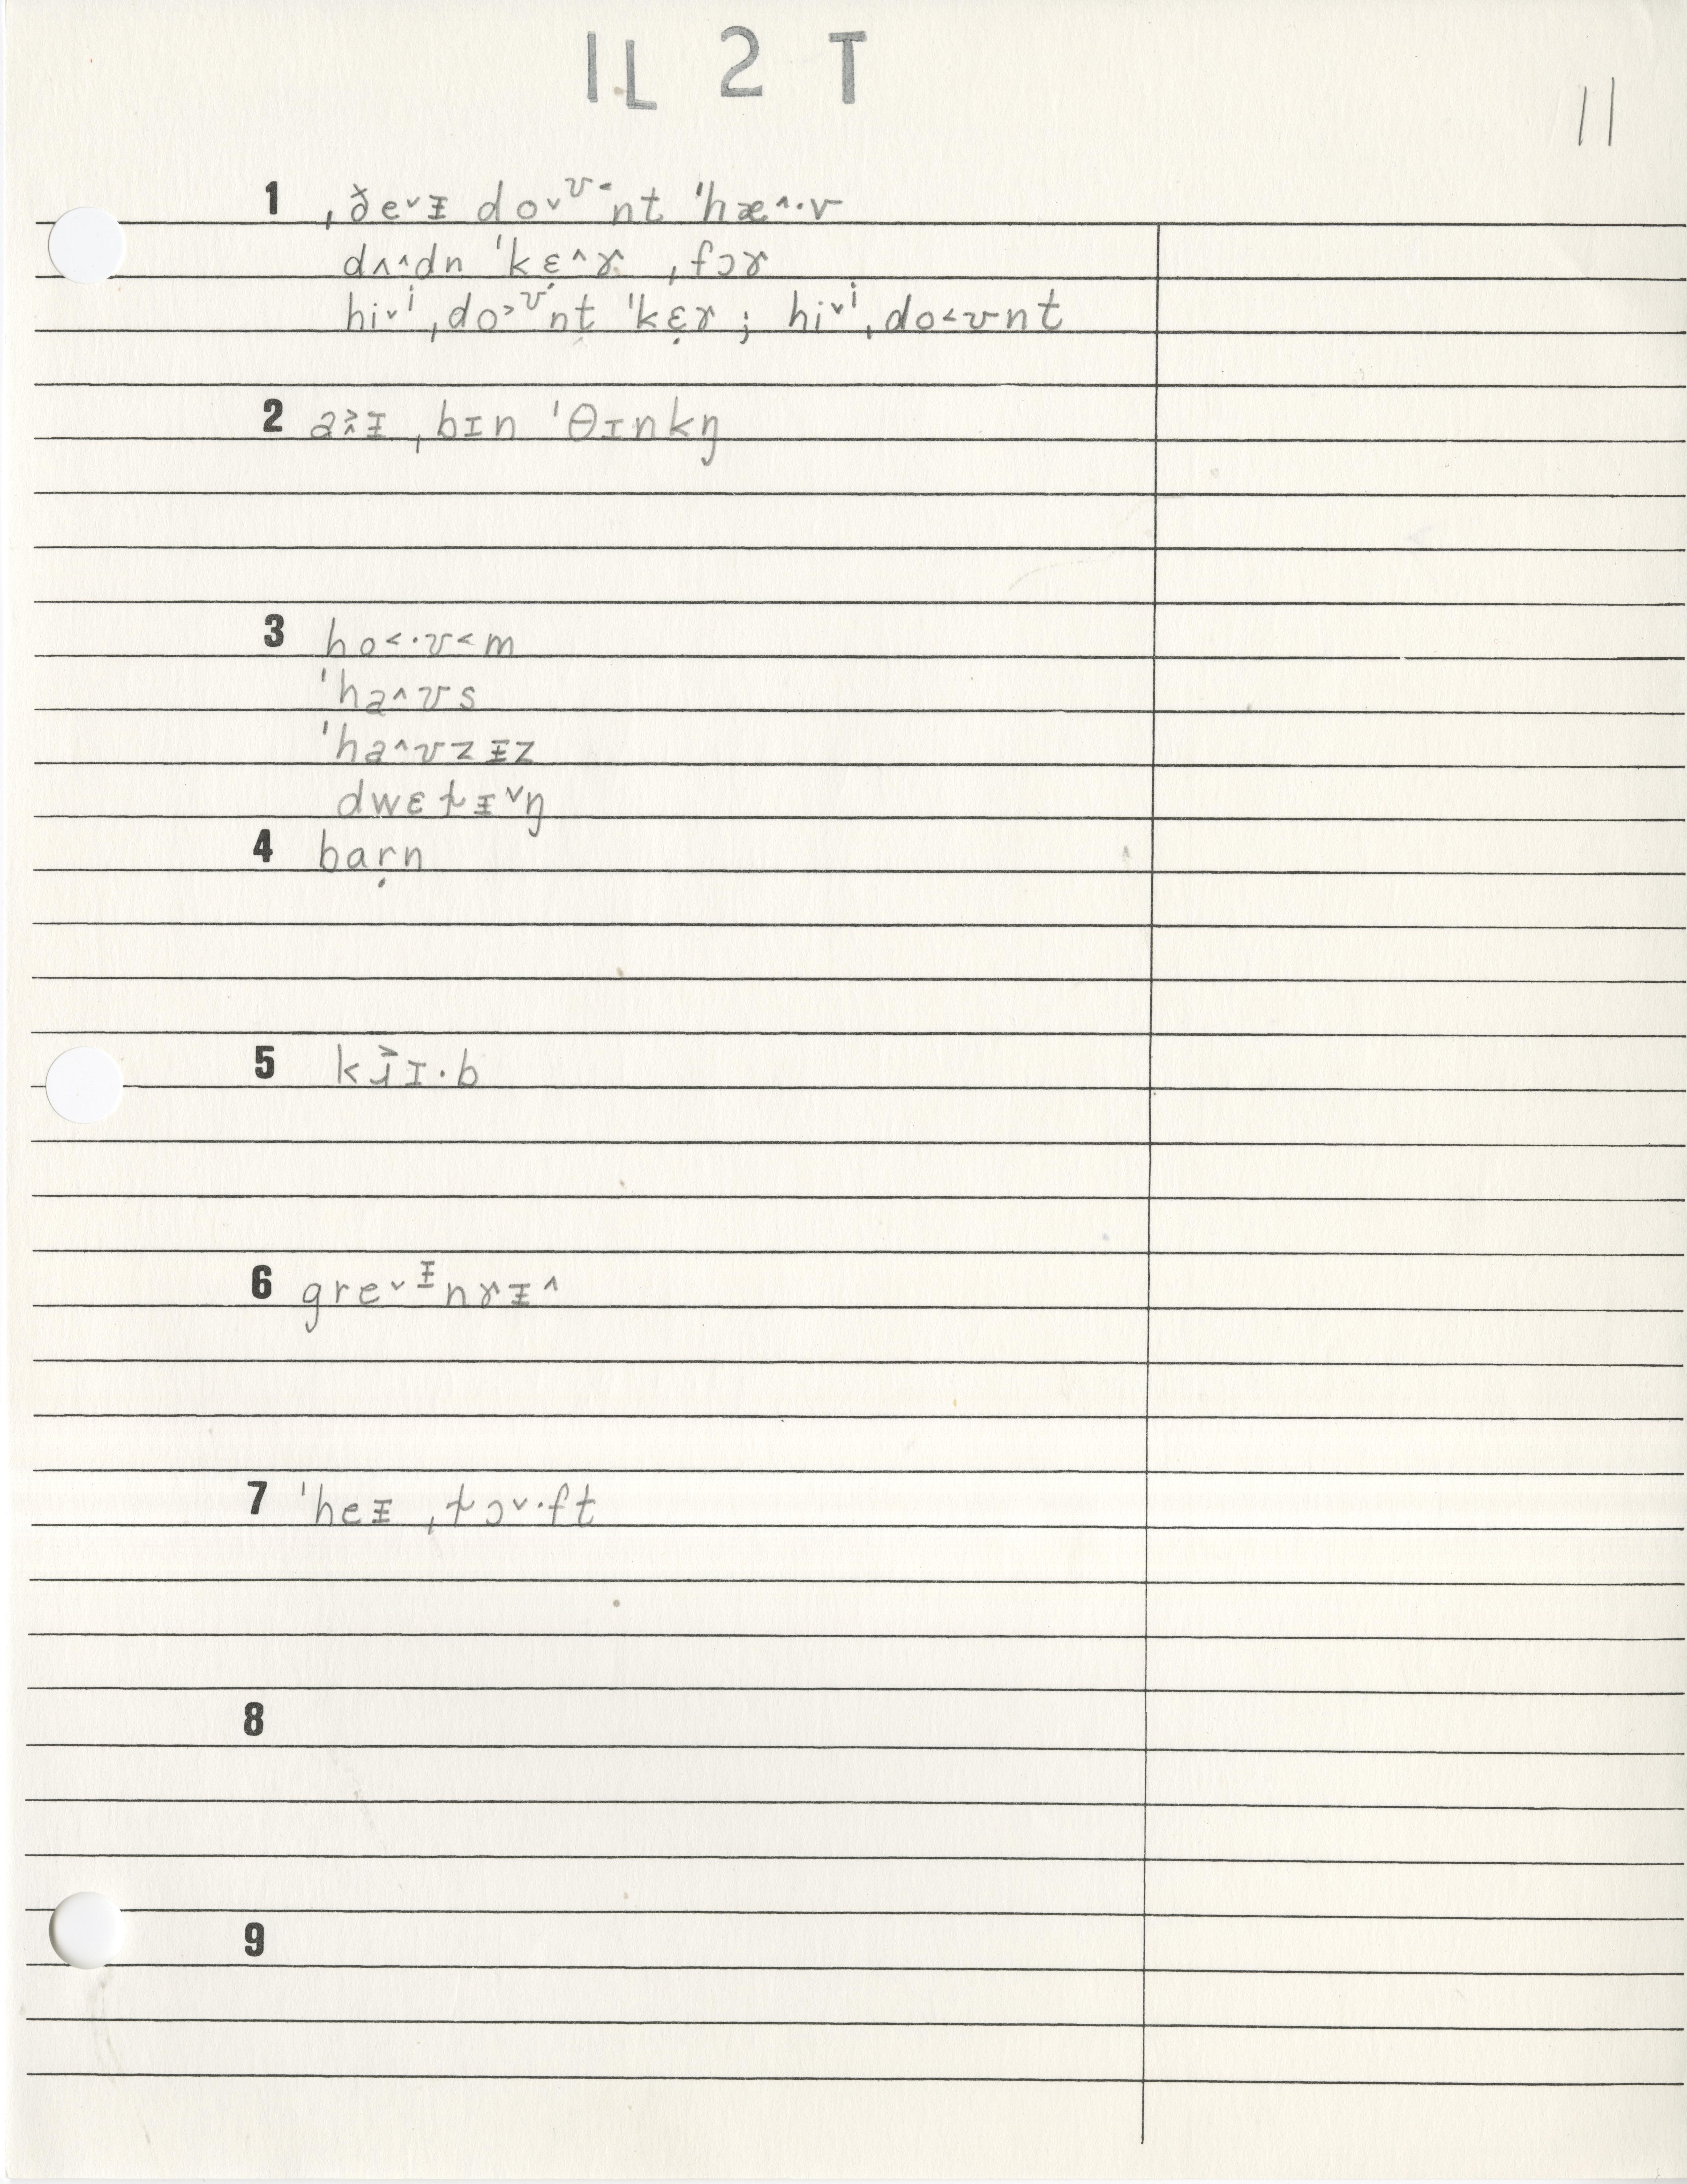 IL 2 T
11
1 ˌðe˅ᵻ do˅ᶷ˂nt ˈhæ˄·v
dʌ˄dn ˈkɛ̣˄ɤ ˌfɔɤ
hi˅ⁱ ˌdo˃ᶷnt ˈkɛ̣ɤ ; hi˅ⁱ ˌdo˂ʊnt
2 a˃˄ᵻ ˌbɪn ˈθɪnkŋ
3 ho˂·ʊ˂m
ˈha˄ʊs
ˈha˄ʊzᵻz
dwɛɫᵻ˅ŋ
4 baṛn
5 kɹ˃ɪ·b
6 gre˅ᵻnɤᵻ˄
7 ˈheᵻ ˌɫɔ˅·ft
8
9